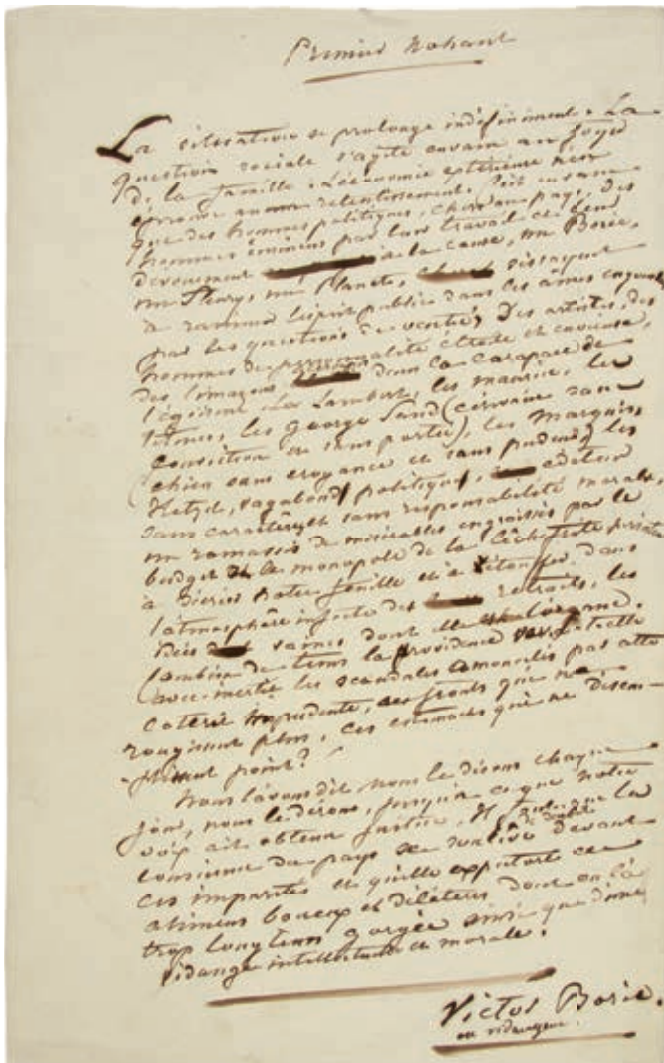 Premier Nohant
La situation se prolonge indéfiniment. La
question sociale s'agite envain au foyer
de la famille. L'économie extérieure n'en
éprouve aucun retentissement. C'est envain
que des hommes politiques, chers au pays, des
hommes éminens par leur travail et leur
dévouement à la cause, mr Borie,
mr Fleury, mr Planet, essayent
de ranimer l'esprit public dans les âmes
par les questions de Des artistes, des
hommes de personnalité étroite et envieuse,
des limaçons dans la carapace de
l'égoïsme. Les Lambert, les maurice, les
titines, les George Sand (écrivain sans
conviction et sans portée), les Marquis,
(chien sans croyance et sans pudeur) les
Hetzel, vagabond politique, éditeur
sans caractère et sans responsabilité morale,
un ramassis de misérables engraissés par le
budget et le monopole de la
à notre feuille et à l'étouffer dans
l'atmosphère infecte des retraits, les
idées saines dont elle est l'organe.
Combien de tems la providence
avec inertie les scandales amoncelés par cette
coterie impudente, ces fronts qui ne
rougissent plus, ces estomacs qui ne désem-
plissent point?
Nous l'avons dit, nous le disons chaque
jour, nous le dirons, jusqu'à ce que notre
voix ait obtenu justice. Il faut que la
conscience du pays se soulève devant
ces impuretés et qu'elle expectore ces
alimens boueux et délétères dont on l'a
trop longtems gorgée ainsi que d'une
vidange intellectuelle et morale.
Victor Borie.
ou vidangeur.